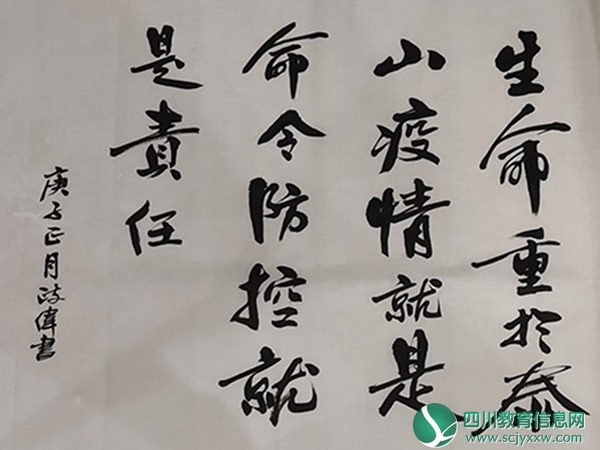 生命重於泰
山疫情就是
命令防控就
是責任
庚子正月政偉書
四川教育信息网
www.scjyxxw.com